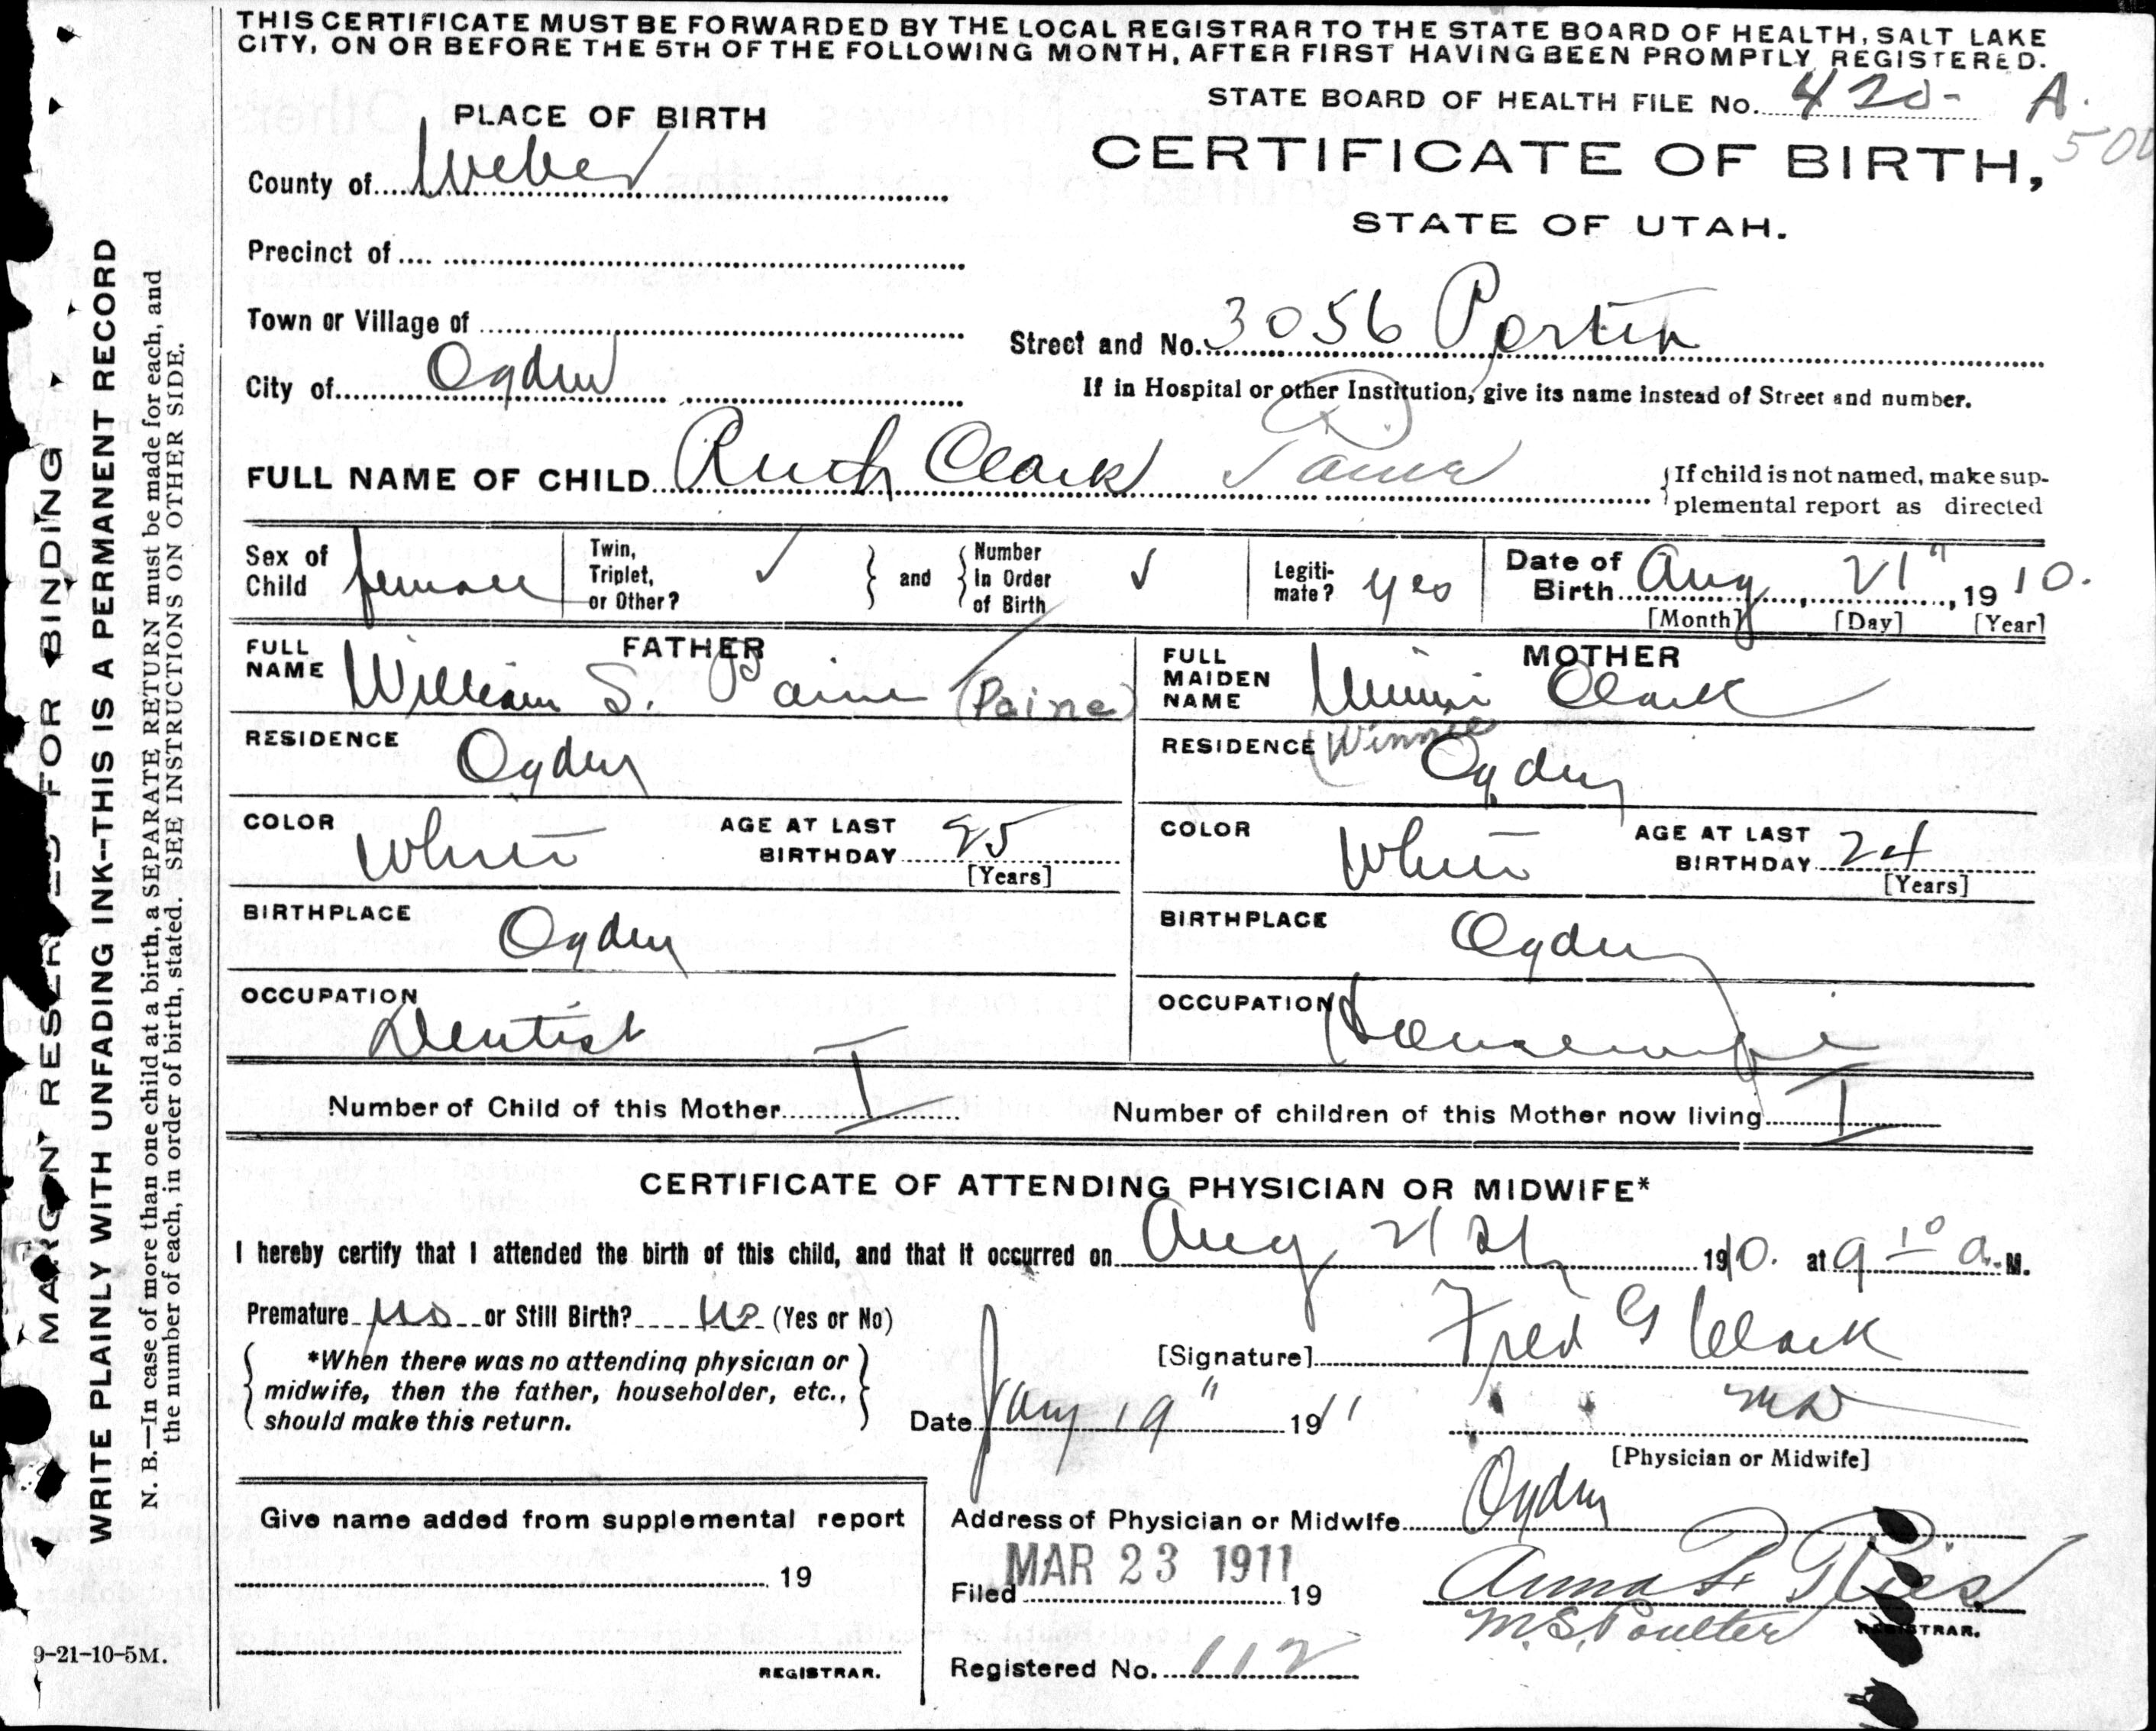 THIS CERTIFICATE MUST BE FORWARDED BY THE LOCAL REGISTRAR TO THE STATE BOARD OF HEALTH, SALT LAKE
CITY, ON OR BEFORE THE 5TH OF THE FOLLOWING MONTH, AFTER FIRST HAVING BEEN PROMPTLY REGISTERED.
STATE BOARD OF HEALTH FILE No. 420- A.
500
PLACE OF BIRTH
CERTIFICATE OF BIRTH,
STATE OF UTAH.
County of Weber
Precinct of
Town or Village of
Street and No. 3056 Porter
City of Ogden
If in Hospital or other Institution, give its name instead of Street and number.
FULL NAME OF CHILD Ruth Clark Paine
{If child is not named, make sup-
plemental report as directed
Sex of Child female
Twin, Triplet, or Other? ✓
and
Number in Order of Birth ✓
Legiti-mate? yes
Date of Birth Aug, 21", 1910.
[Month] [Day] [Year]
FATHER
FULL NAME William S. Paine (Paine)
RESIDENCE Ogden
COLOR White
AGE AT LAST BIRTHDAY 25
[Years]
BIRTHPLACE Ogden
OCCUPATION Dentist
MOTHER
FULL MAIDEN NAME Winni Clark
(Winnie
RESIDENCE Ogden
COLOR White
AGE AT LAST BIRTHDAY 24
[Years]
BIRTHPLACE Ogden
OCCUPATION Housewife
Number of Child of this Mother I
Number of children of this Mother now living I
CERTIFICATE OF ATTENDING PHYSICIAN OR MIDWIFE*
I hereby certify that I attended the birth of this child, and that it occurred on Aug 21st 1910. at 9 10 a.M.
Premature no or Still Birth? no (Yes or No)
*When there was no attending physician or
midwife, then the father, householder, etc.,
should make this return.
[Signature] Fred G Clark
MD
[Physician or Midwife]
Date Jany 19" 1911
Give name added from supplemental report
19
REGISTRAR.
Address of Physician or Midwife Ogden
Filed MAR 23 1911 19
Anna F. Ries
M.S. Poulter
REGISTRAR.
Registered No. 112
MARGIN RESERVED FOR BINDING
WRITE PLAINLY WITH UNFADING INK--THIS IS A PERMANENT RECORD
N. B.—In case of more than one child at a birth, a SEPARATE RETURN must be made for each, and
the number of each, in order of birth, stated. SEE INSTRUCTIONS ON OTHER SIDE.
9-21-10-5M.